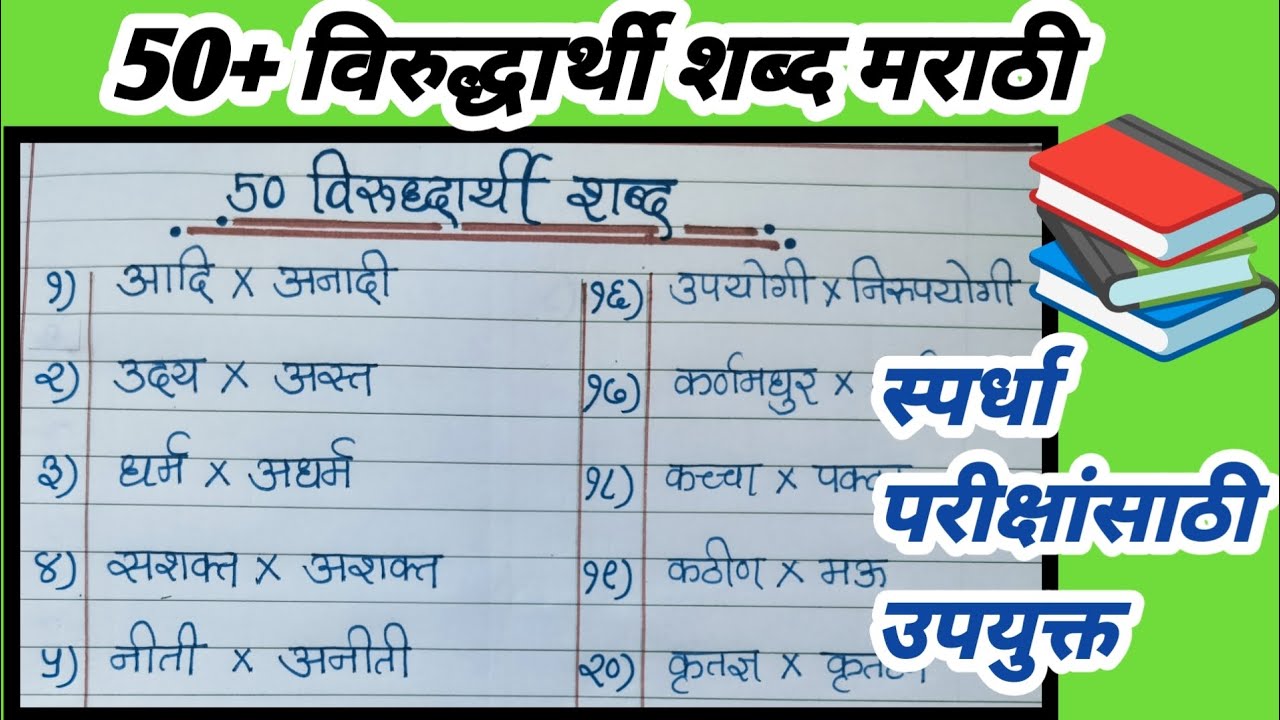 50+ विरुद्धार्थी शब्द मराठी
50 विरुध्दार्थी शब्द
१) आदि x अनादी
२) उदय x अस्त
३) धर्म x अधर्म
४) सशक्त x अशक्त
५) नीती x अनीती
१६) उपयोगी x निरुपयोगी
१७) कर्णमधुर x
१८) कच्चा x
१९) कठीण x मऊ
२०) कृतज्ञ x
स्पर्धा
परीक्षांसाठी
उपयुक्त